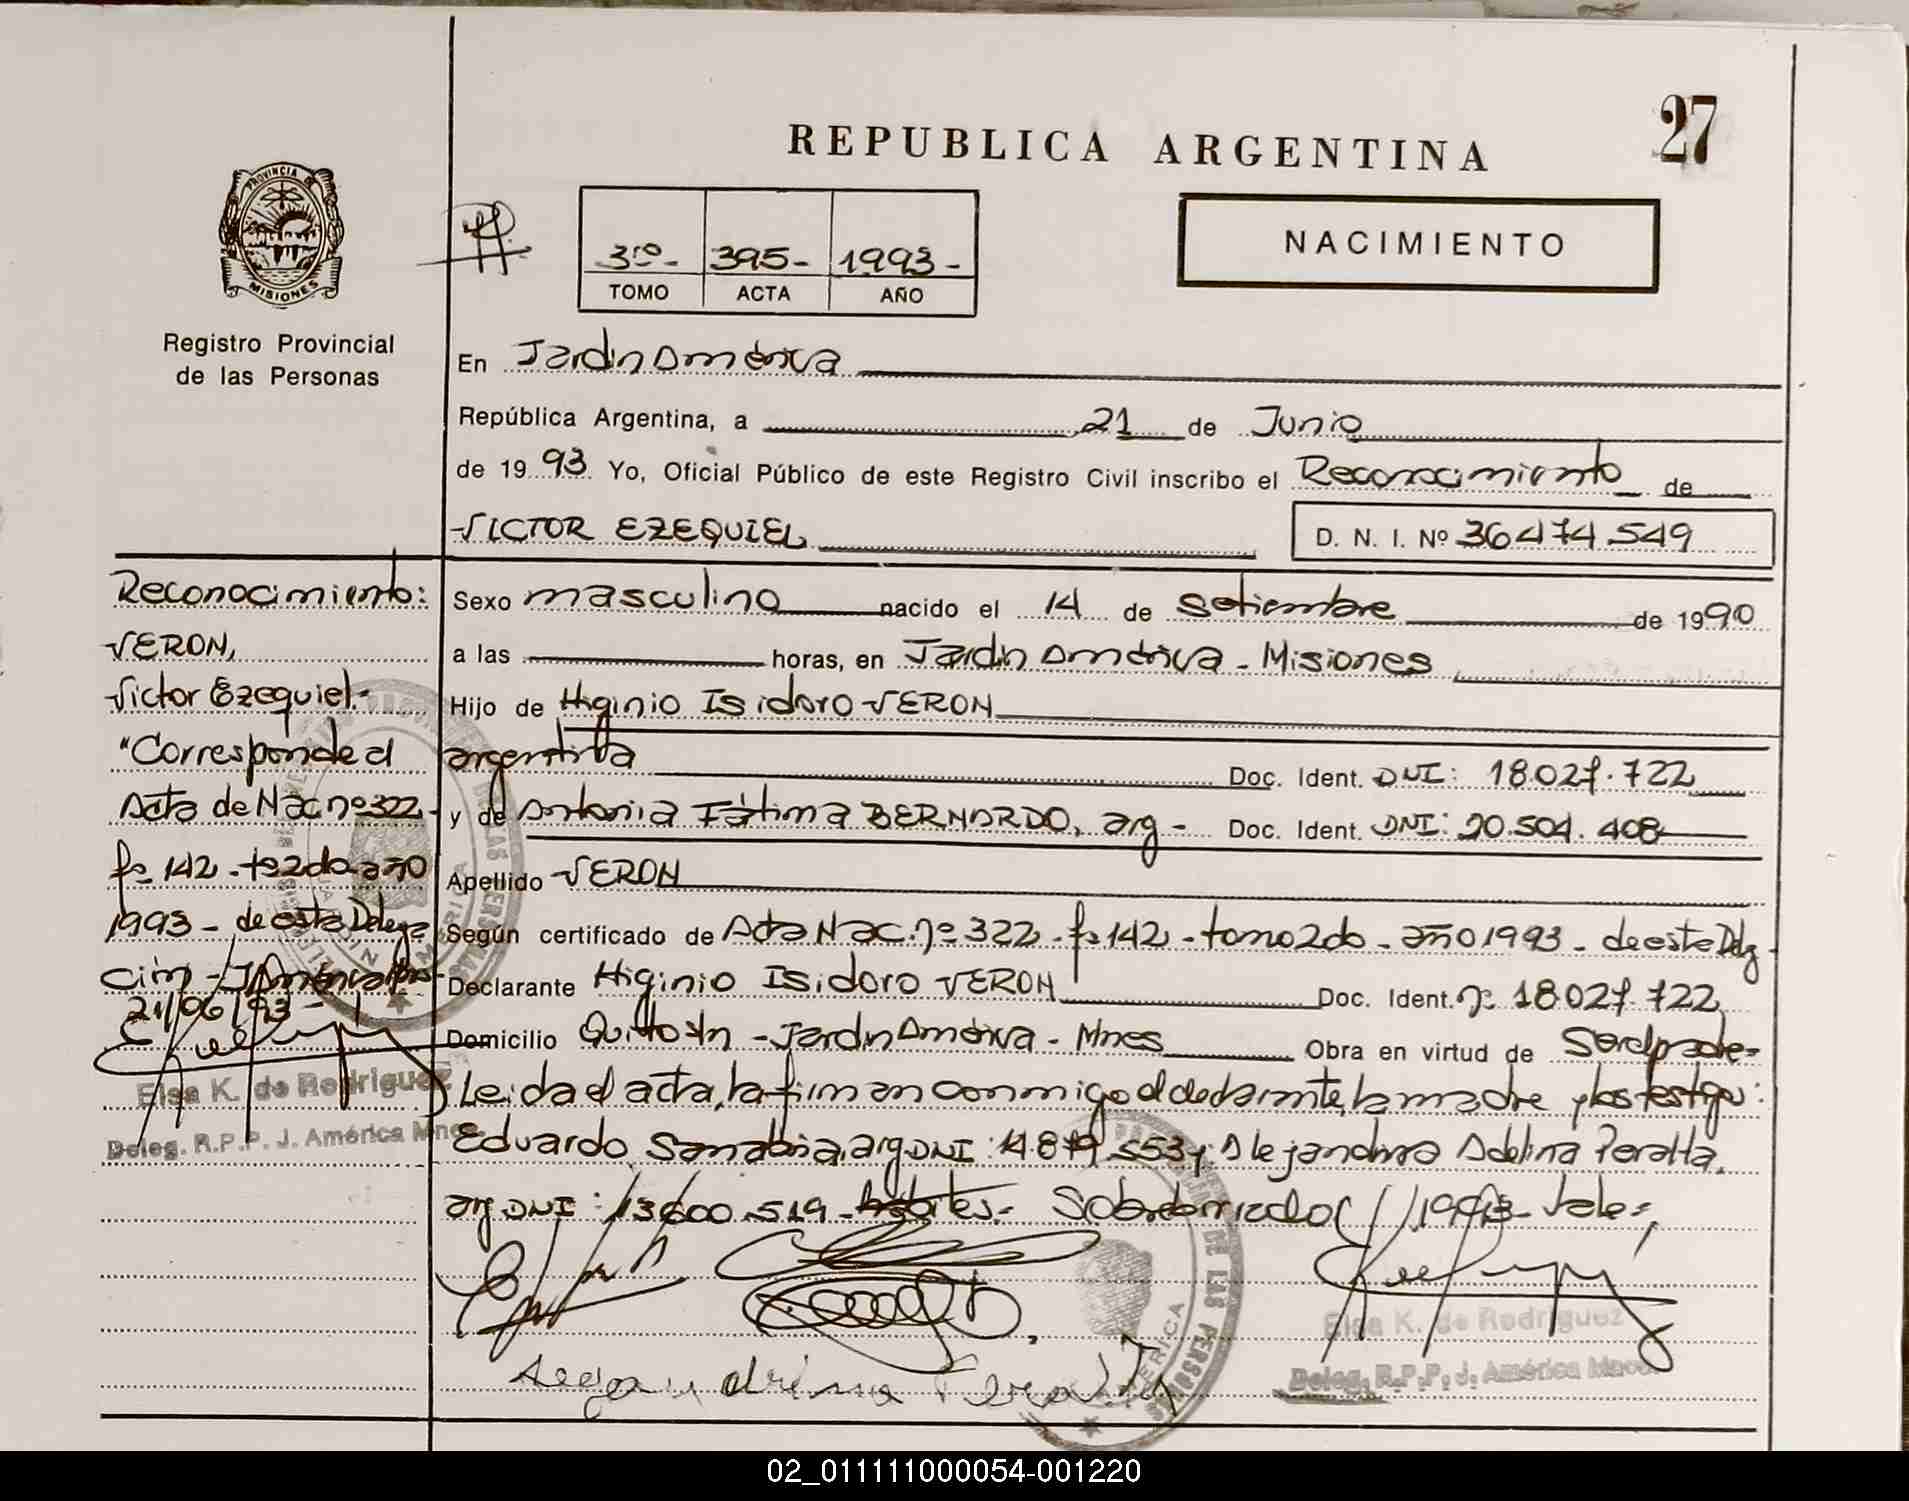 REPUBLICA ARGENTINA
27
PROVINCIA DE
MISIONES
Registro Provincial
de las Personas
3ro- 395- 1993-
TOMO ACTA AÑO
NACIMIENTO
En Jardín América
República Argentina, a 21 de Junio
de 1993. Yo, Oficial Público de este Registro Civil inscribo el Reconocimiento de
VICTOR EZEQUIEL
D. N. I. Nº 36474.549
Reconocimiento:
VERON,
Victor Ezequiel.-
"Corresponde al
Acta de Nac nº 322
fº 142 - tº 2do año
1993 - de esta Delega
ción - J. América
21/06/93 -
Elsa K. de Rodriguez
Deleg. R.P.P. J. América Mnes.
Sexo masculino nacido el 14 de Setiembre de 1990
a las horas, en Jardín América - Misiones
Hijo de Higinio Isidoro VERON
argentina Doc. Ident. DNI: 18.027.722
y de Antonia Fátima BERNARDO, arg- Doc. Ident. DNI: 20.504.408
Apellido VERON
Según certificado de Acta Nac. nº 322 - fº 142 - tomo 2do - año 1993 - de esta Deleg.
Declarante Higinio Isidoro VERON Doc. Ident. nº 18.027.722
Domicilio Quito s/n - Jardín América - Mnes Obra en virtud de Ser el padre-
Leida el acta, la firman conmigo el declarante, la madre y los testigos:
Eduardo Sanabria, arg DNI: 14.879.553 y Alejandrina Adelina Peralta,
arg DNI: 13.600.519 - Sobreborrado 1993 - Vale.
Alejandrina Peralta
Elsa K. de Rodriguez
Deleg. R.P.P. J. América Mnes.
02_011111000054-001220